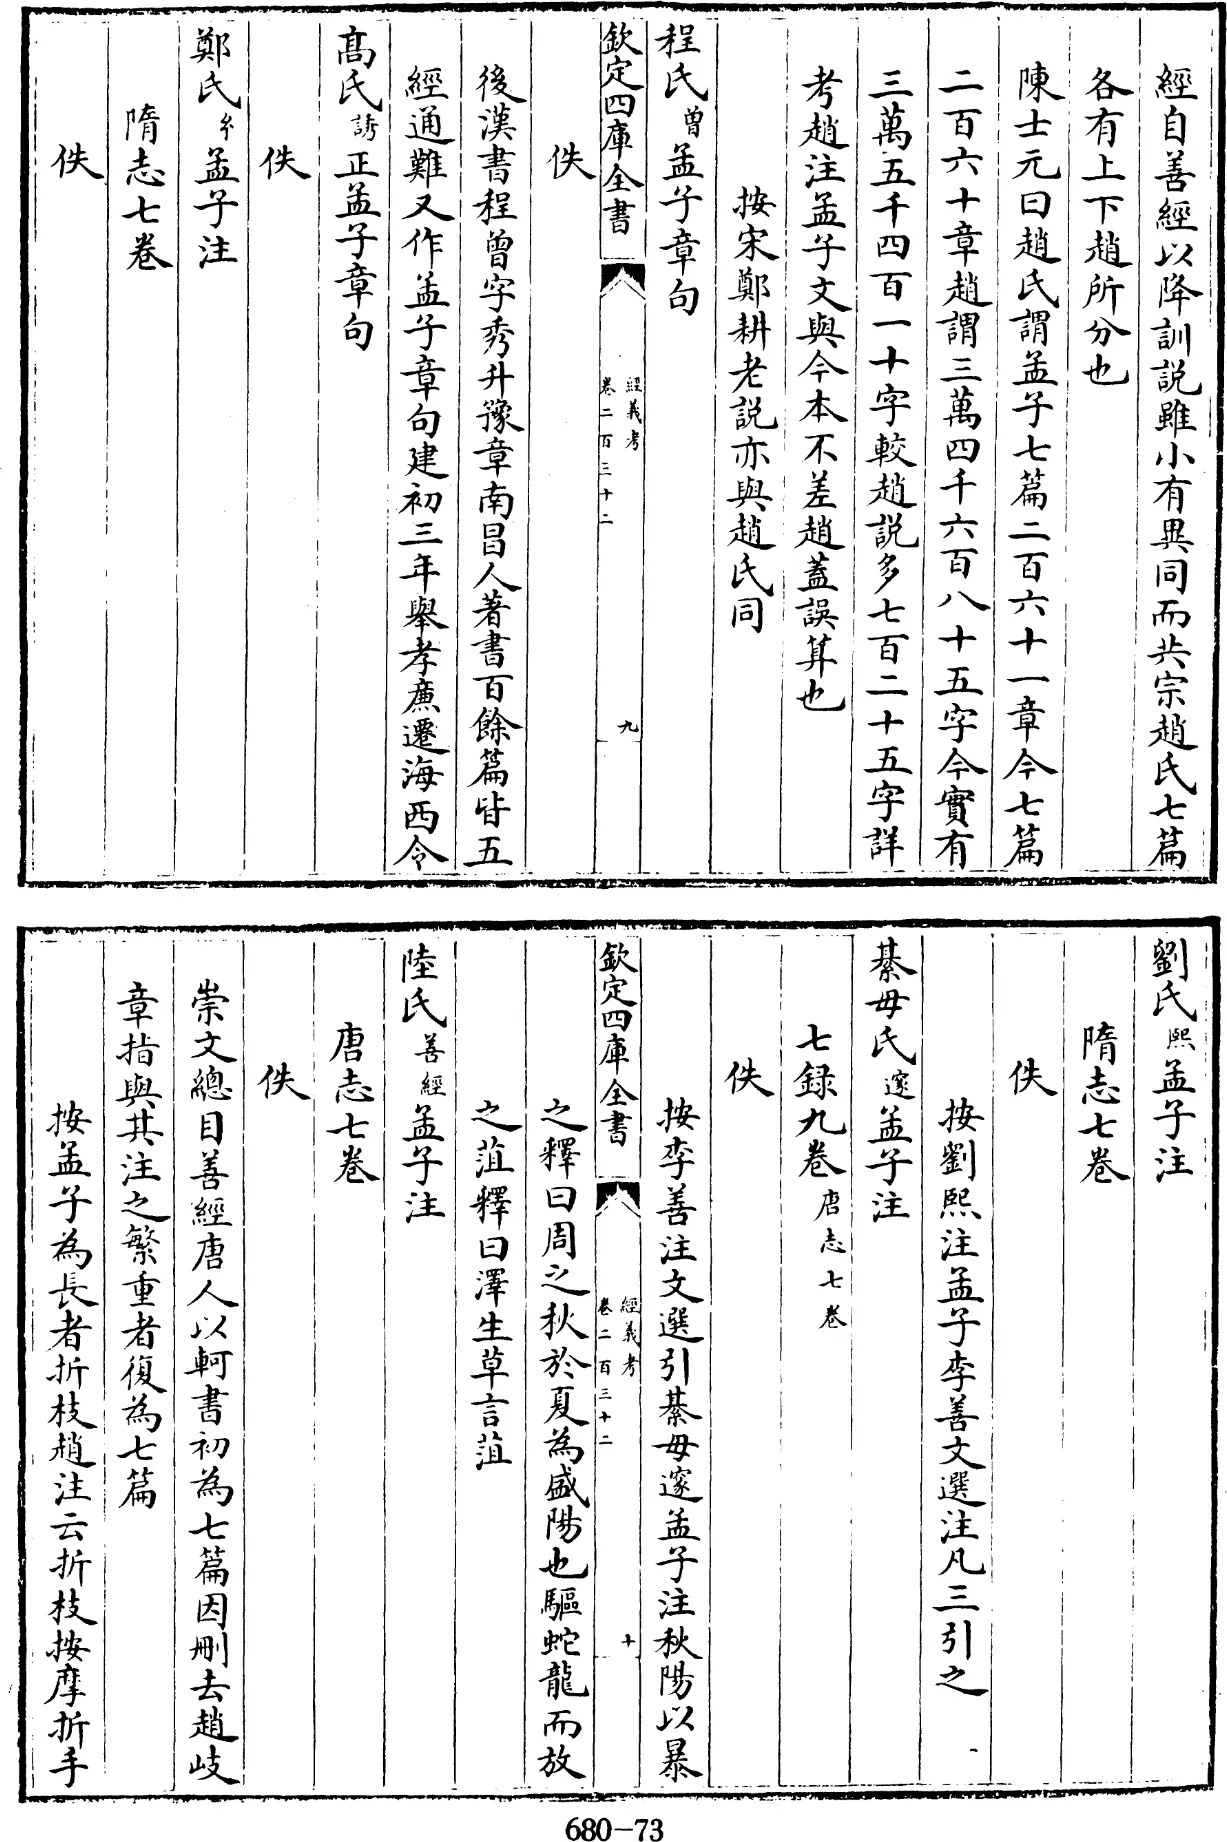 經自善經以降訓説雖小有異同而共宗趙氏七篇
各有上下趙所分也
陳士元曰趙氏謂孟子七篇二百六十一章今七篇
二百六十章趙謂三萬四千六百八十五字今實有
三萬五千四百一十字較趙説多七百二十五字詳
考趙注孟子文與今本不差趙蓋誤算也
按宋鄭耕老説亦與趙氏同
程氏曾孟子章句
欽定四庫全書
經義考
卷二百三十二
九
佚
後漢書程曾字秀升豫章南昌人著書百餘篇皆五
經通難又作孟子章句建初三年舉孝廉遷海西令
高氏誘正孟子章句
佚
鄭氏𤣥孟子注
隋志七卷
佚
劉氏熙孟子注
隋志七卷
佚
按劉熙注孟子李善文選注凡三引之
綦毋氏邃孟子注
七録九卷唐志七卷
佚
按李善注文選引綦毋邃孟子注秋陽以暴
欽定四庫全書
經義考
卷二百三十二
十
之釋曰周之秋於夏為盛陽也驅蛇龍而放
之菹釋曰澤生草言菹
陸氏善經孟子注
唐志七卷
佚
崇文總目善經唐人以軻書初為七篇因刪去趙岐
章指與其注之繁重者復為七篇
按孟子為長者折枝趙注云折枝按摩折手
680-73